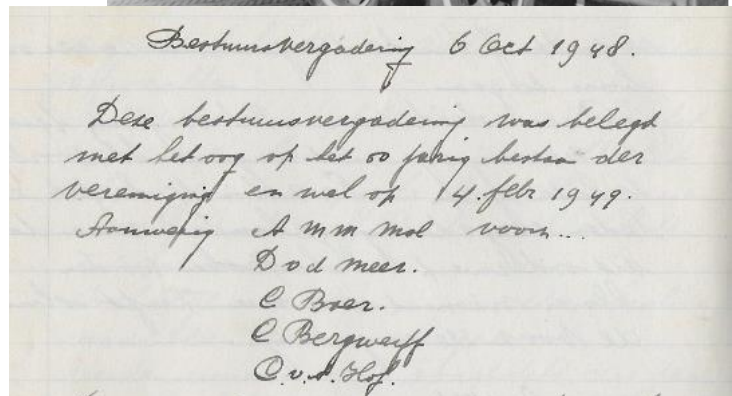 Bestuursvergadering 6 Oct 1948.
Deze bestuursvergadering was belegd
met het oog op het 50 jarig bestaan der
vereniging en wel op 4 febr 1949.
Aanwezig A M M Mol voorz...
D v d Meer.
C Boer.
C Bergwerff
C. v. d. Hof.